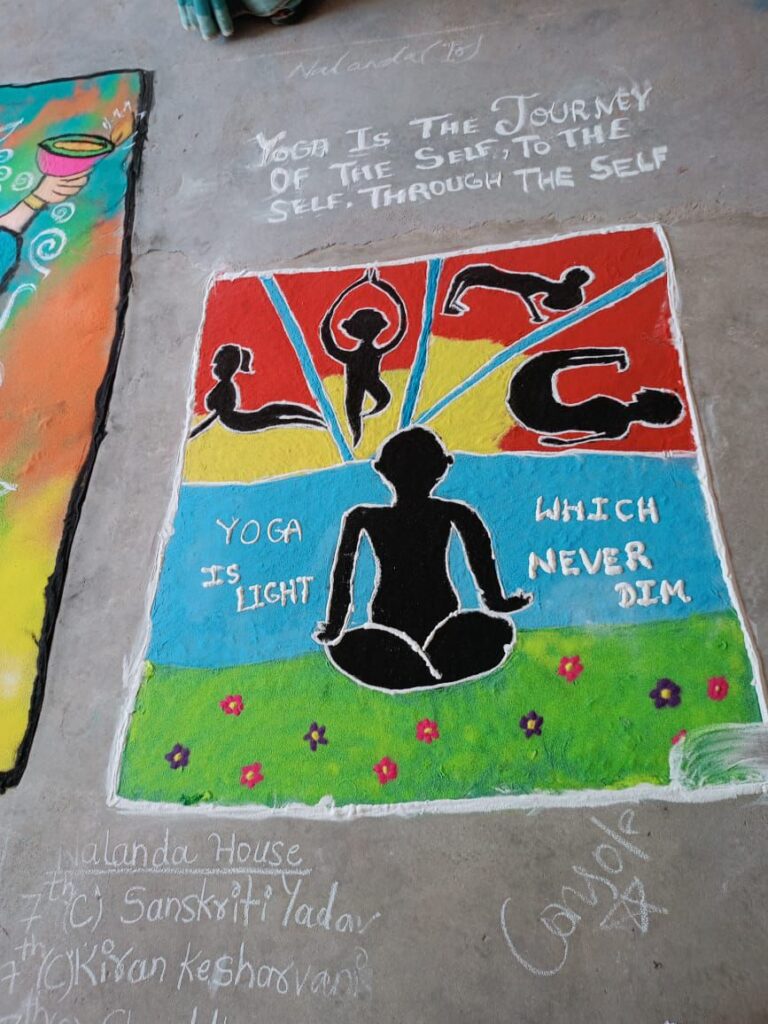 Nalanda (
YOGA IS THE JOURNEY
OF THE SELF, TO THE
SELF, THROUGH THE SELF
YOGA
IS
LIGHT
WHICH
NEVER
DIM.
Nalanda House
7th (C) Sanskriti Yadav
7th (C) Kiran Kesharvani
7th